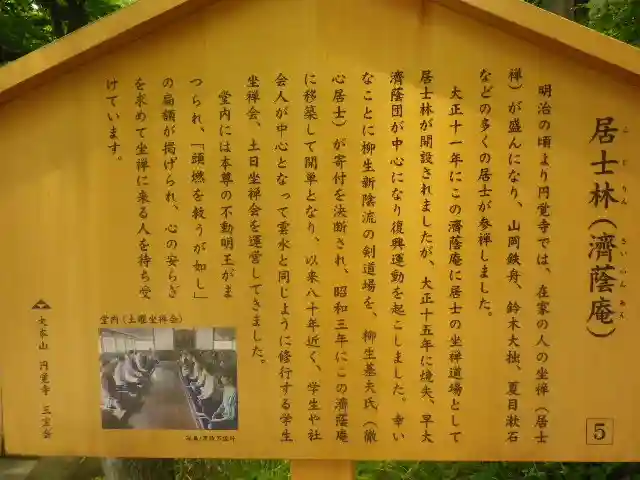 居士林(濟蔭庵)
こ じ りん
さい いん あん
明治の頃より円覚寺では、在家の人の坐禅(居士
禅)が盛んになり、山岡鉄舟、鈴木大拙、夏目漱石
などの多くの居士が参禅しました。
大正十一年にこの濟蔭庵に居士の坐禅道場として
居士林が開設されましたが、大正十五年に焼失、早大
濟蔭団が中心になり復興運動を起こしました。幸い
なことに柳生新陰流の剣道場を、柳生基夫氏(徹
心居士)が寄付を決断され、昭和三年にこの濟蔭庵
に移築して開単となり、以来八十年近く、学生や社
会人が中心となって雲水と同じように修行する学生
坐禅会、土日坐禅会を運営してきました。
堂内には本尊の不動明王がま
つられ、「頭燃を救うが如し」
の扁額が掲げられ、心の安らぎ
を求めて坐禅に来る人を待ち受
けています。
堂内(土曜坐禅会)
大本山 円覚寺 三宝会
5